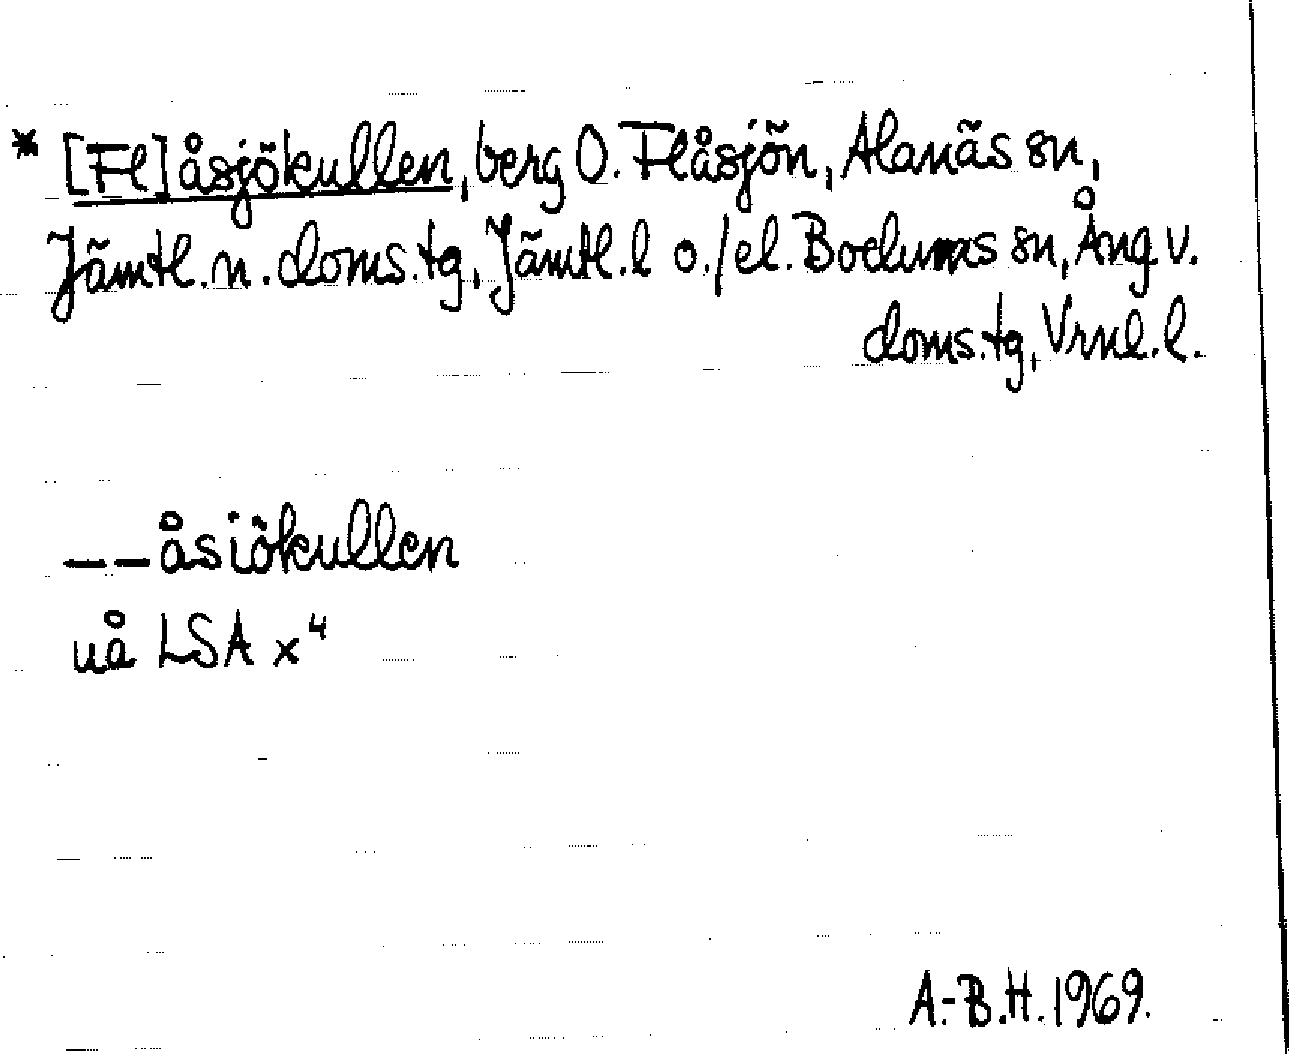 * [Fl]åsjökullen, berg O. Flåsjön, Alanäs sn,
Jämtl. n. doms. tg, Jämtl. l o./el. Bodums sn, Ång. v.
doms. tg, Vrnl. l.
– – åsiökullen
uå LSA x⁴
A.-B.H. 1969.